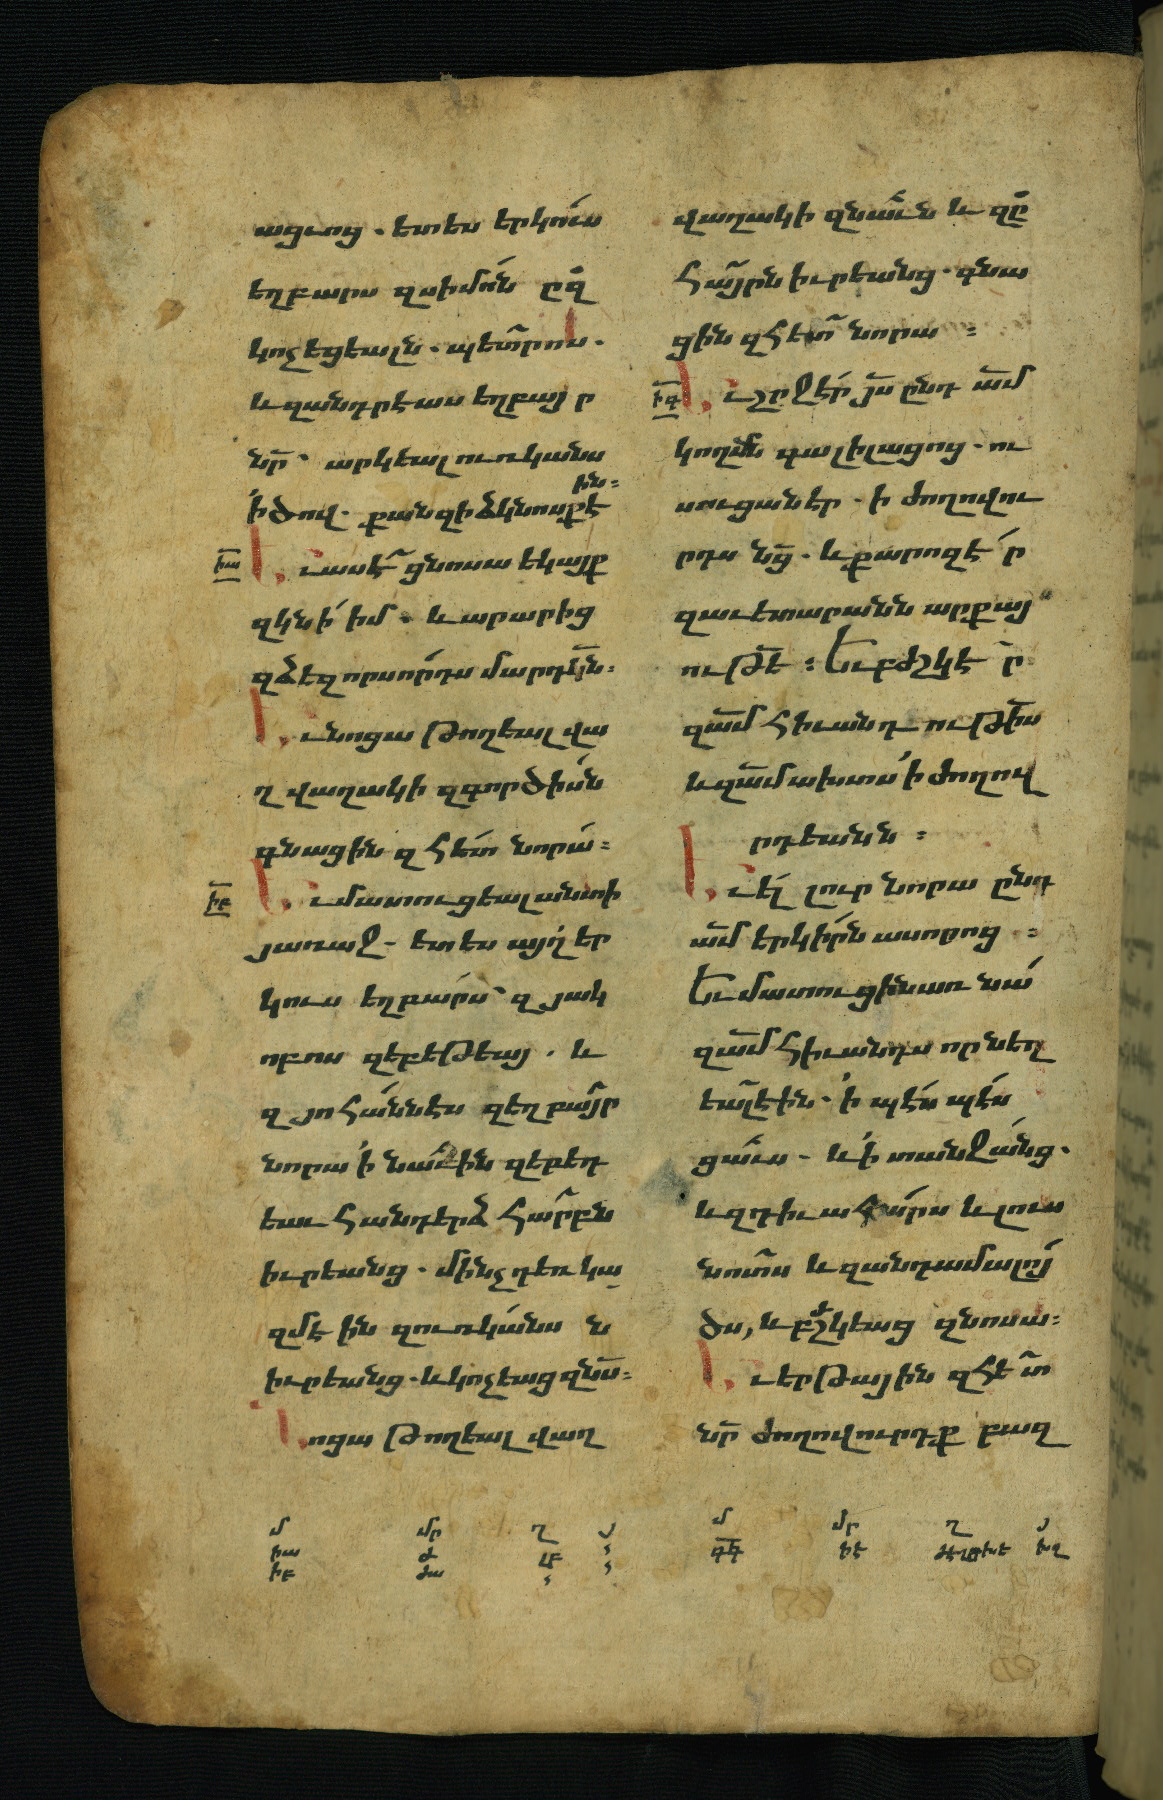 ացւոց. ետես երկո՛ւս
եղբարս զսիմո՛ն ըզ
կոչեցեալն. պետրոս.
և զանդրէաս եղբայր
նր՟ արկեալ ուռկանս
ի ծով. քանզի ձկնորսք էին=
իա Եւ ասէ՛ ցնոսա եկայք
զկնի՛ իմ. և արարից
զձեզ որսո՛րդս մարդկ՟ն.
Եւ նոցա թողեալ վա
ղվաղակի զգործի՛սն
գնացին զհե՛տ նորա=
իբ Եւ մատուցեալ անտի
յառաջ. ետես այղ եր
կուս եղբա՛րս՝ զյակ
ոբոս զեբեթեայ. և
զյոհա՛ննէս զեղբայր
նորա ի նաւին զեբեդ
եաւ հանդերձ հարբն
իւրեանց. մինչդեռ կա
զմէին զուռկա՛նս ն
իւրեանց. և կոչեաց զնս՟=
Նոցա թողեալ վաղ
վաղակի զնաւն և զը
հայրն իւրեանց. գնա
ցին զհետ նորա =
իգ Եւ շրջէր յս՟ ընդ ա՟մ
կողմն գալիլացոց. ու
սուցանէր. ի ժողովու
րդս նց՟. և քարոզէ՛ր
զաւետարանն արքայ
ութե՟ : Եւ բժշկէ՛ր
զա՟մ հիւանդութի՟ս
և զա՟մ ախտս՛ ի ժողով
րդեանն =
Եւ ել լուր նորա ընդ
ա՟մ երկի՛րն ասորոց =
Եւ մատուցին առ նա՛
զա՟մ հիւանդս որ նեղ
եալ էին. ի պէս պէս
ցաւս. և ի տանջա՛նց.
և զդիւահա՛րս և լուս
նոտս և զանդամալոյ
ծս, և բժշկեաց զնոսա=
Եւ երթային զհետ
նր՟ ժողովուրդք բազ
մ մր ղ յ
իա ժ ԼԲ
իբ ժա
մ մր ղ յ
իգ իէ խղ